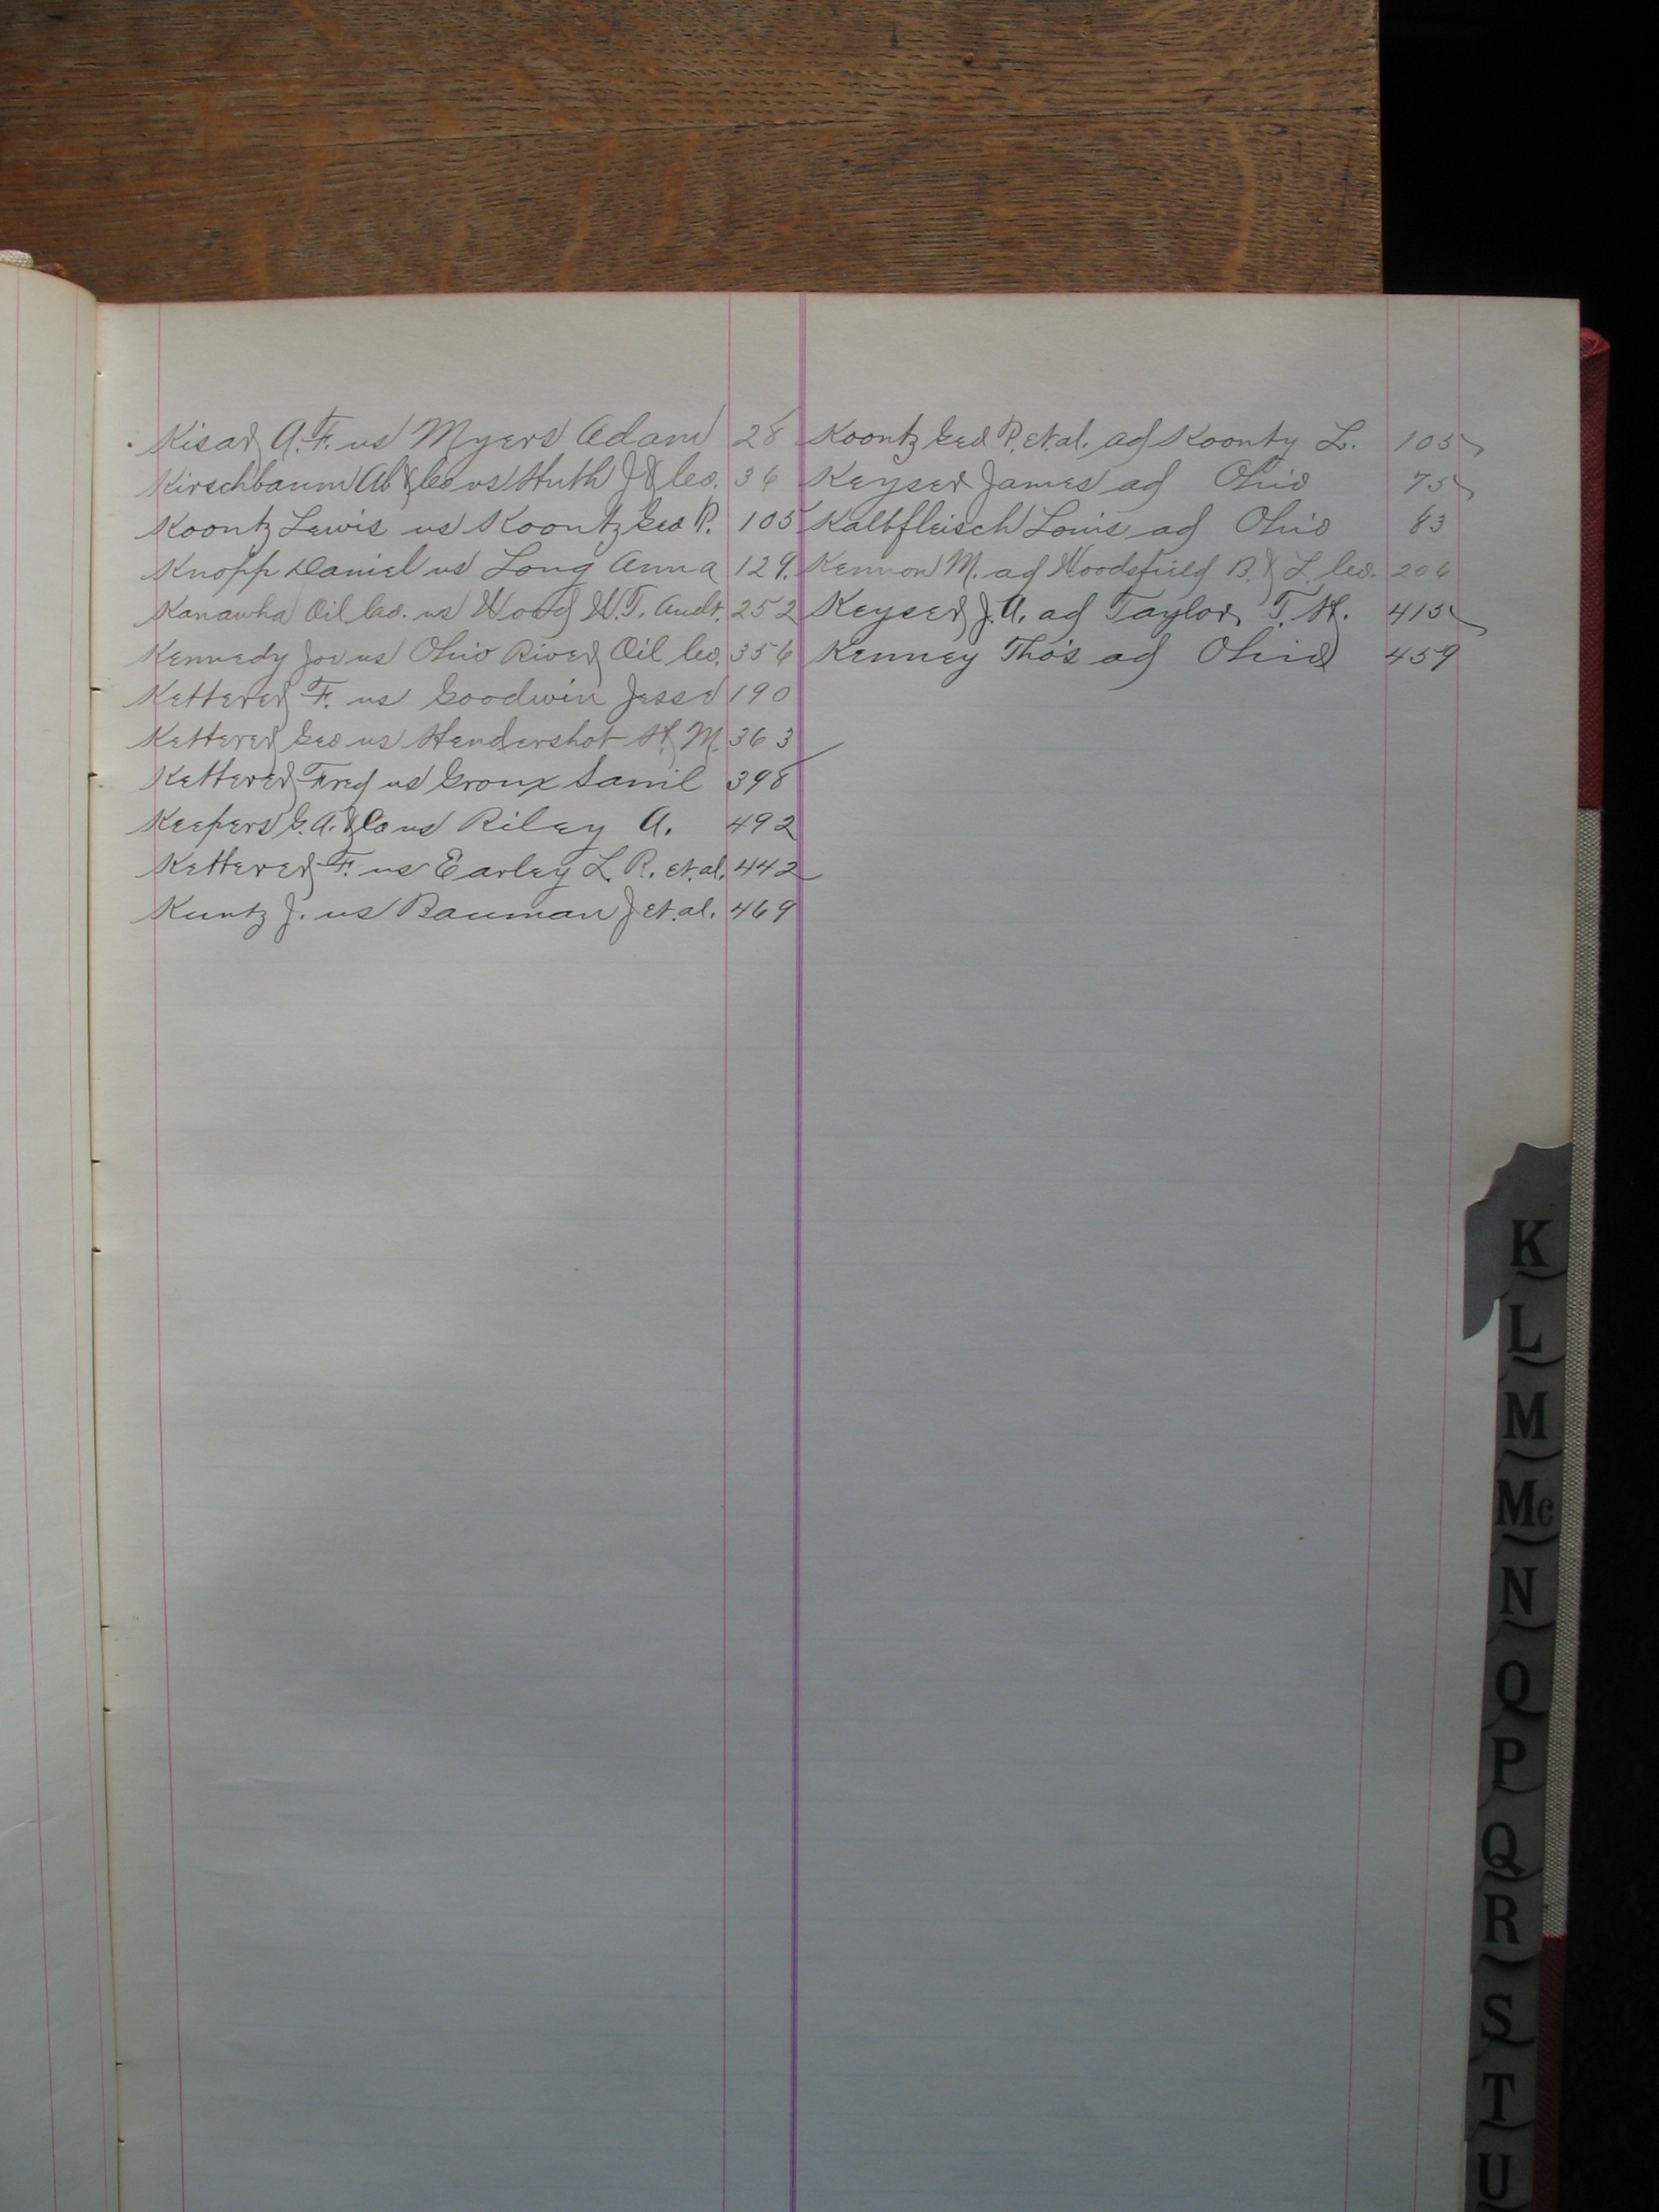 Kisar A. F. vs Myers Adam 28
Kirschbaum Ab & Co vs Huth J & Co. 36
Koontz Lewis vs Koontz Geo P. 105
Knopp Daniel vs Long Anna 129.
Kanawha Oil Co. vs Wood W. T. Audt. 252
Kennedy Joe vs Ohio River Oil Co. 356
Ketterer F. vs Goodwin Jesse 190
Ketterer Geo vs Hendershot H. M. 363
Ketterer Fred vs Groux Saml 398
Keepers G. A. & Co vs Riley A. 492
Ketterer F. vs Earley L. R. et. al. 442
Kuntz J. vs Bauman J et. al. 469
Koontz Geo P. et. al. ad Koontz L. 105
Keyser James ad Ohio 75
Kalbfleisch Louis ad Ohio 83
Kennon M. ad Woodsfield B. & L. Co. 206
Keyser J. A. ad Taylor T. H. 415
Kenney Thos ad Ohio 459
K
L
M
Mc
N
O
P
Q
R
S
T
U